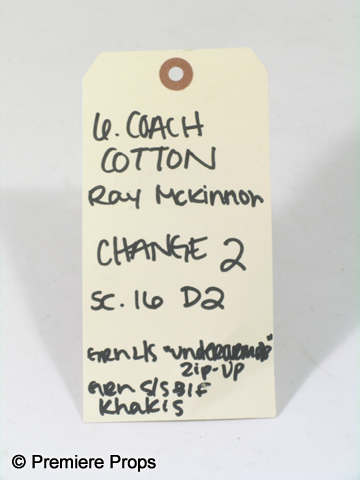 6. COACH
COTTON
Ray McKinnon
CHANGE 2
SC. 16 D2
GRN L/S "underarmor"
ZIP-UP
GRN S/S B/F
Khakis
© Premiere Props